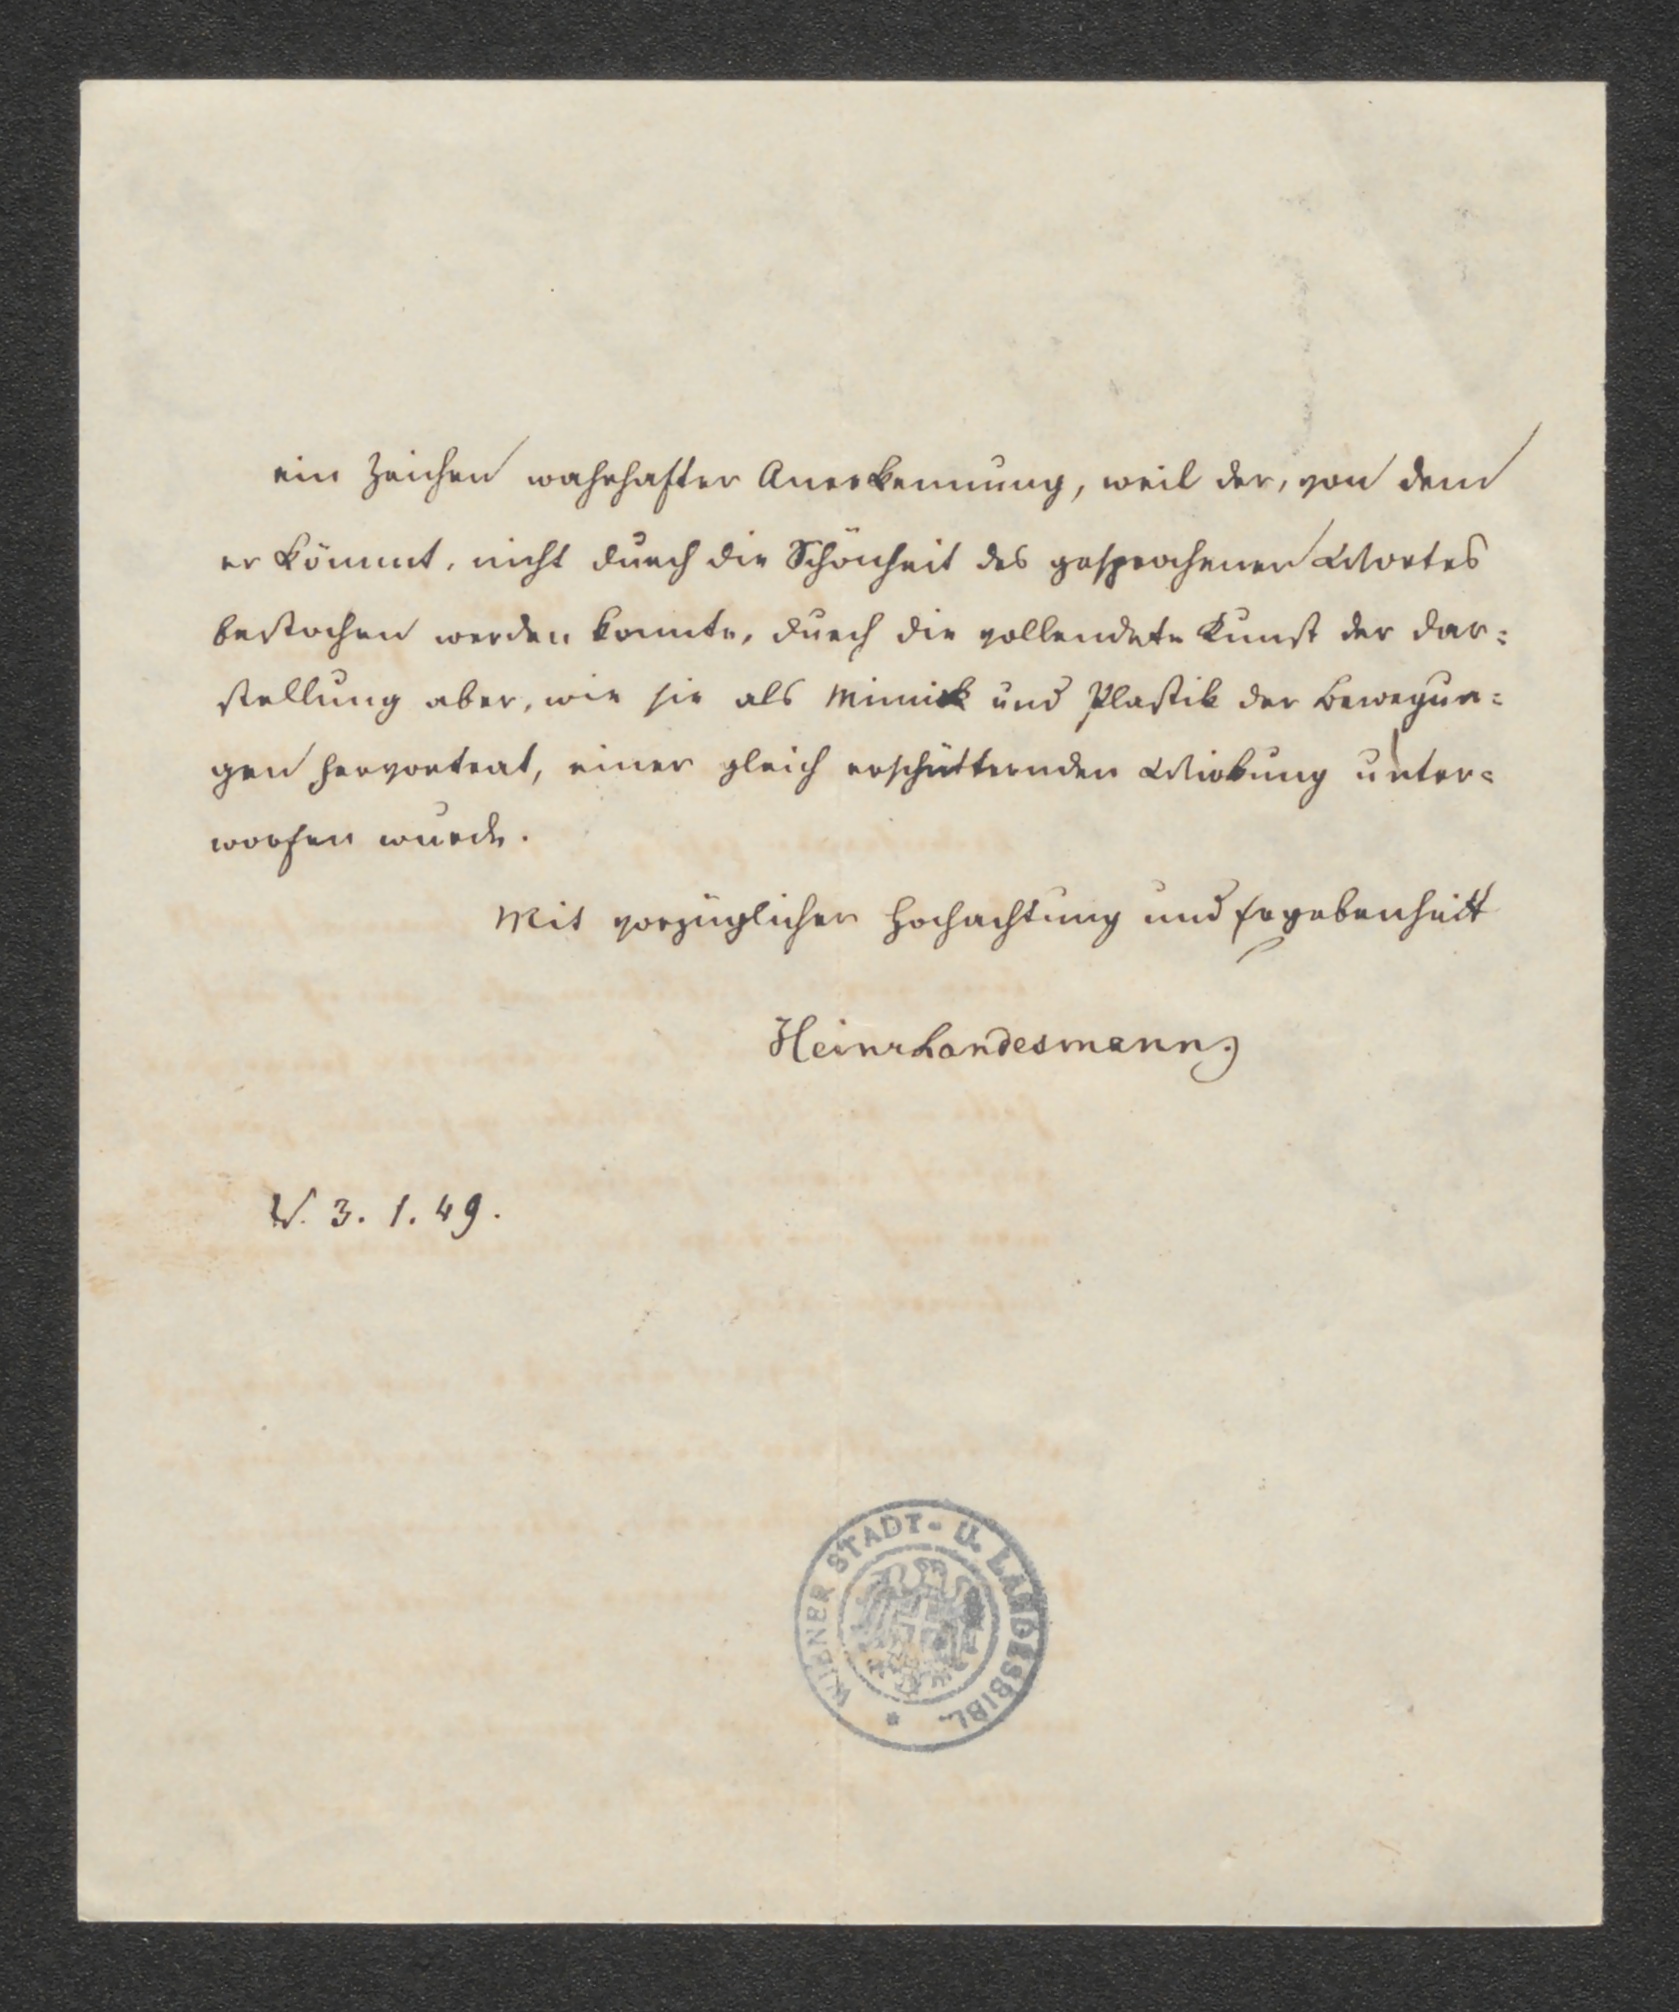 ein Zeichen wahrhafter Anerkennung, weil der, von dem
er kömmt, nicht durch die Schönheit des gesprochenen Wortes
bestochen werden konnte, durch die vollendete Kunst der Dar=
stellung aber, wie sie als Mimik und Plastik der Bewegun=
gen hervortrat, einer gleich erschütternden Wirkung unter=
worfen wurde.
Mit vorzüglicher Hochachtung und Ergebenheit
Heinr Landesmann
W. 3. 1. 49.
WIENER STADT- U. LANDESBIBL.